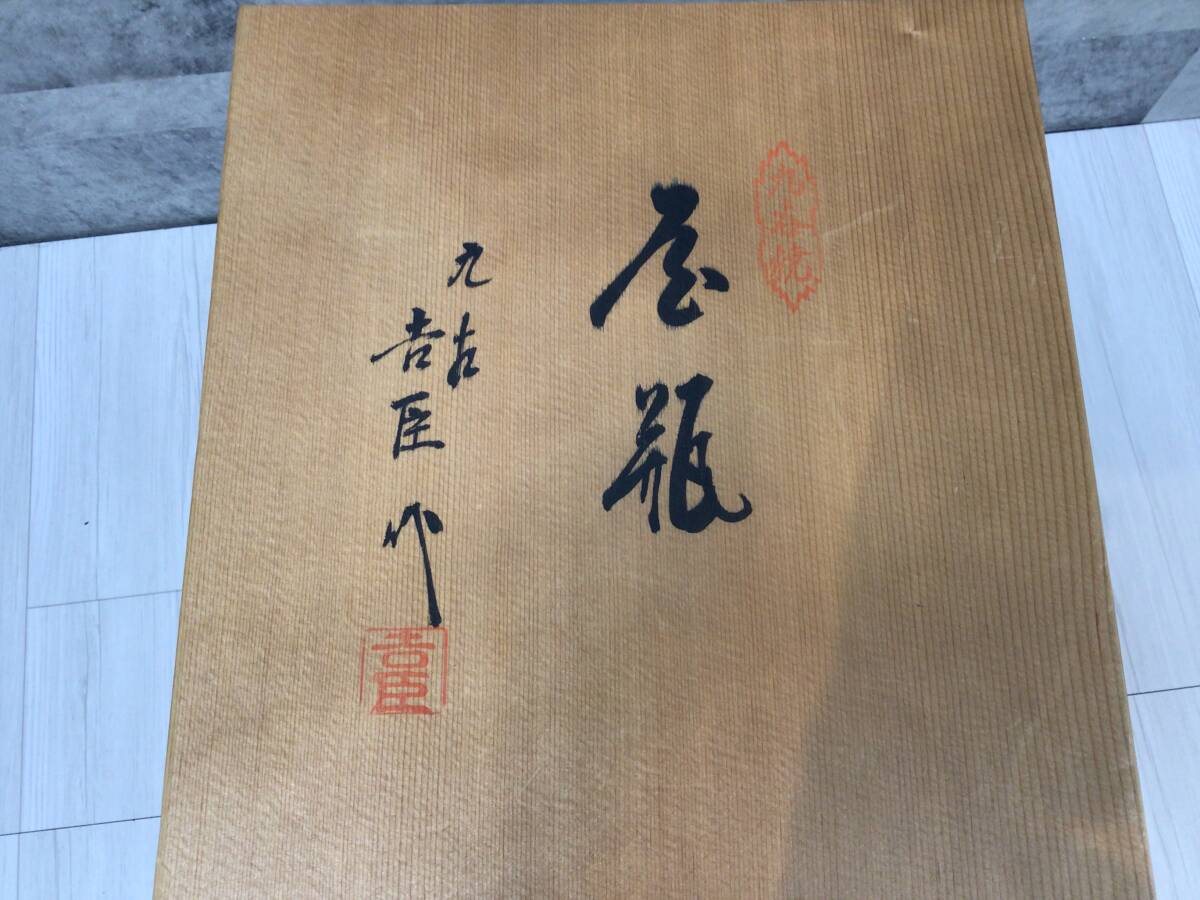 九谷焼
花瓶
九谷
吉臣作
吉臣